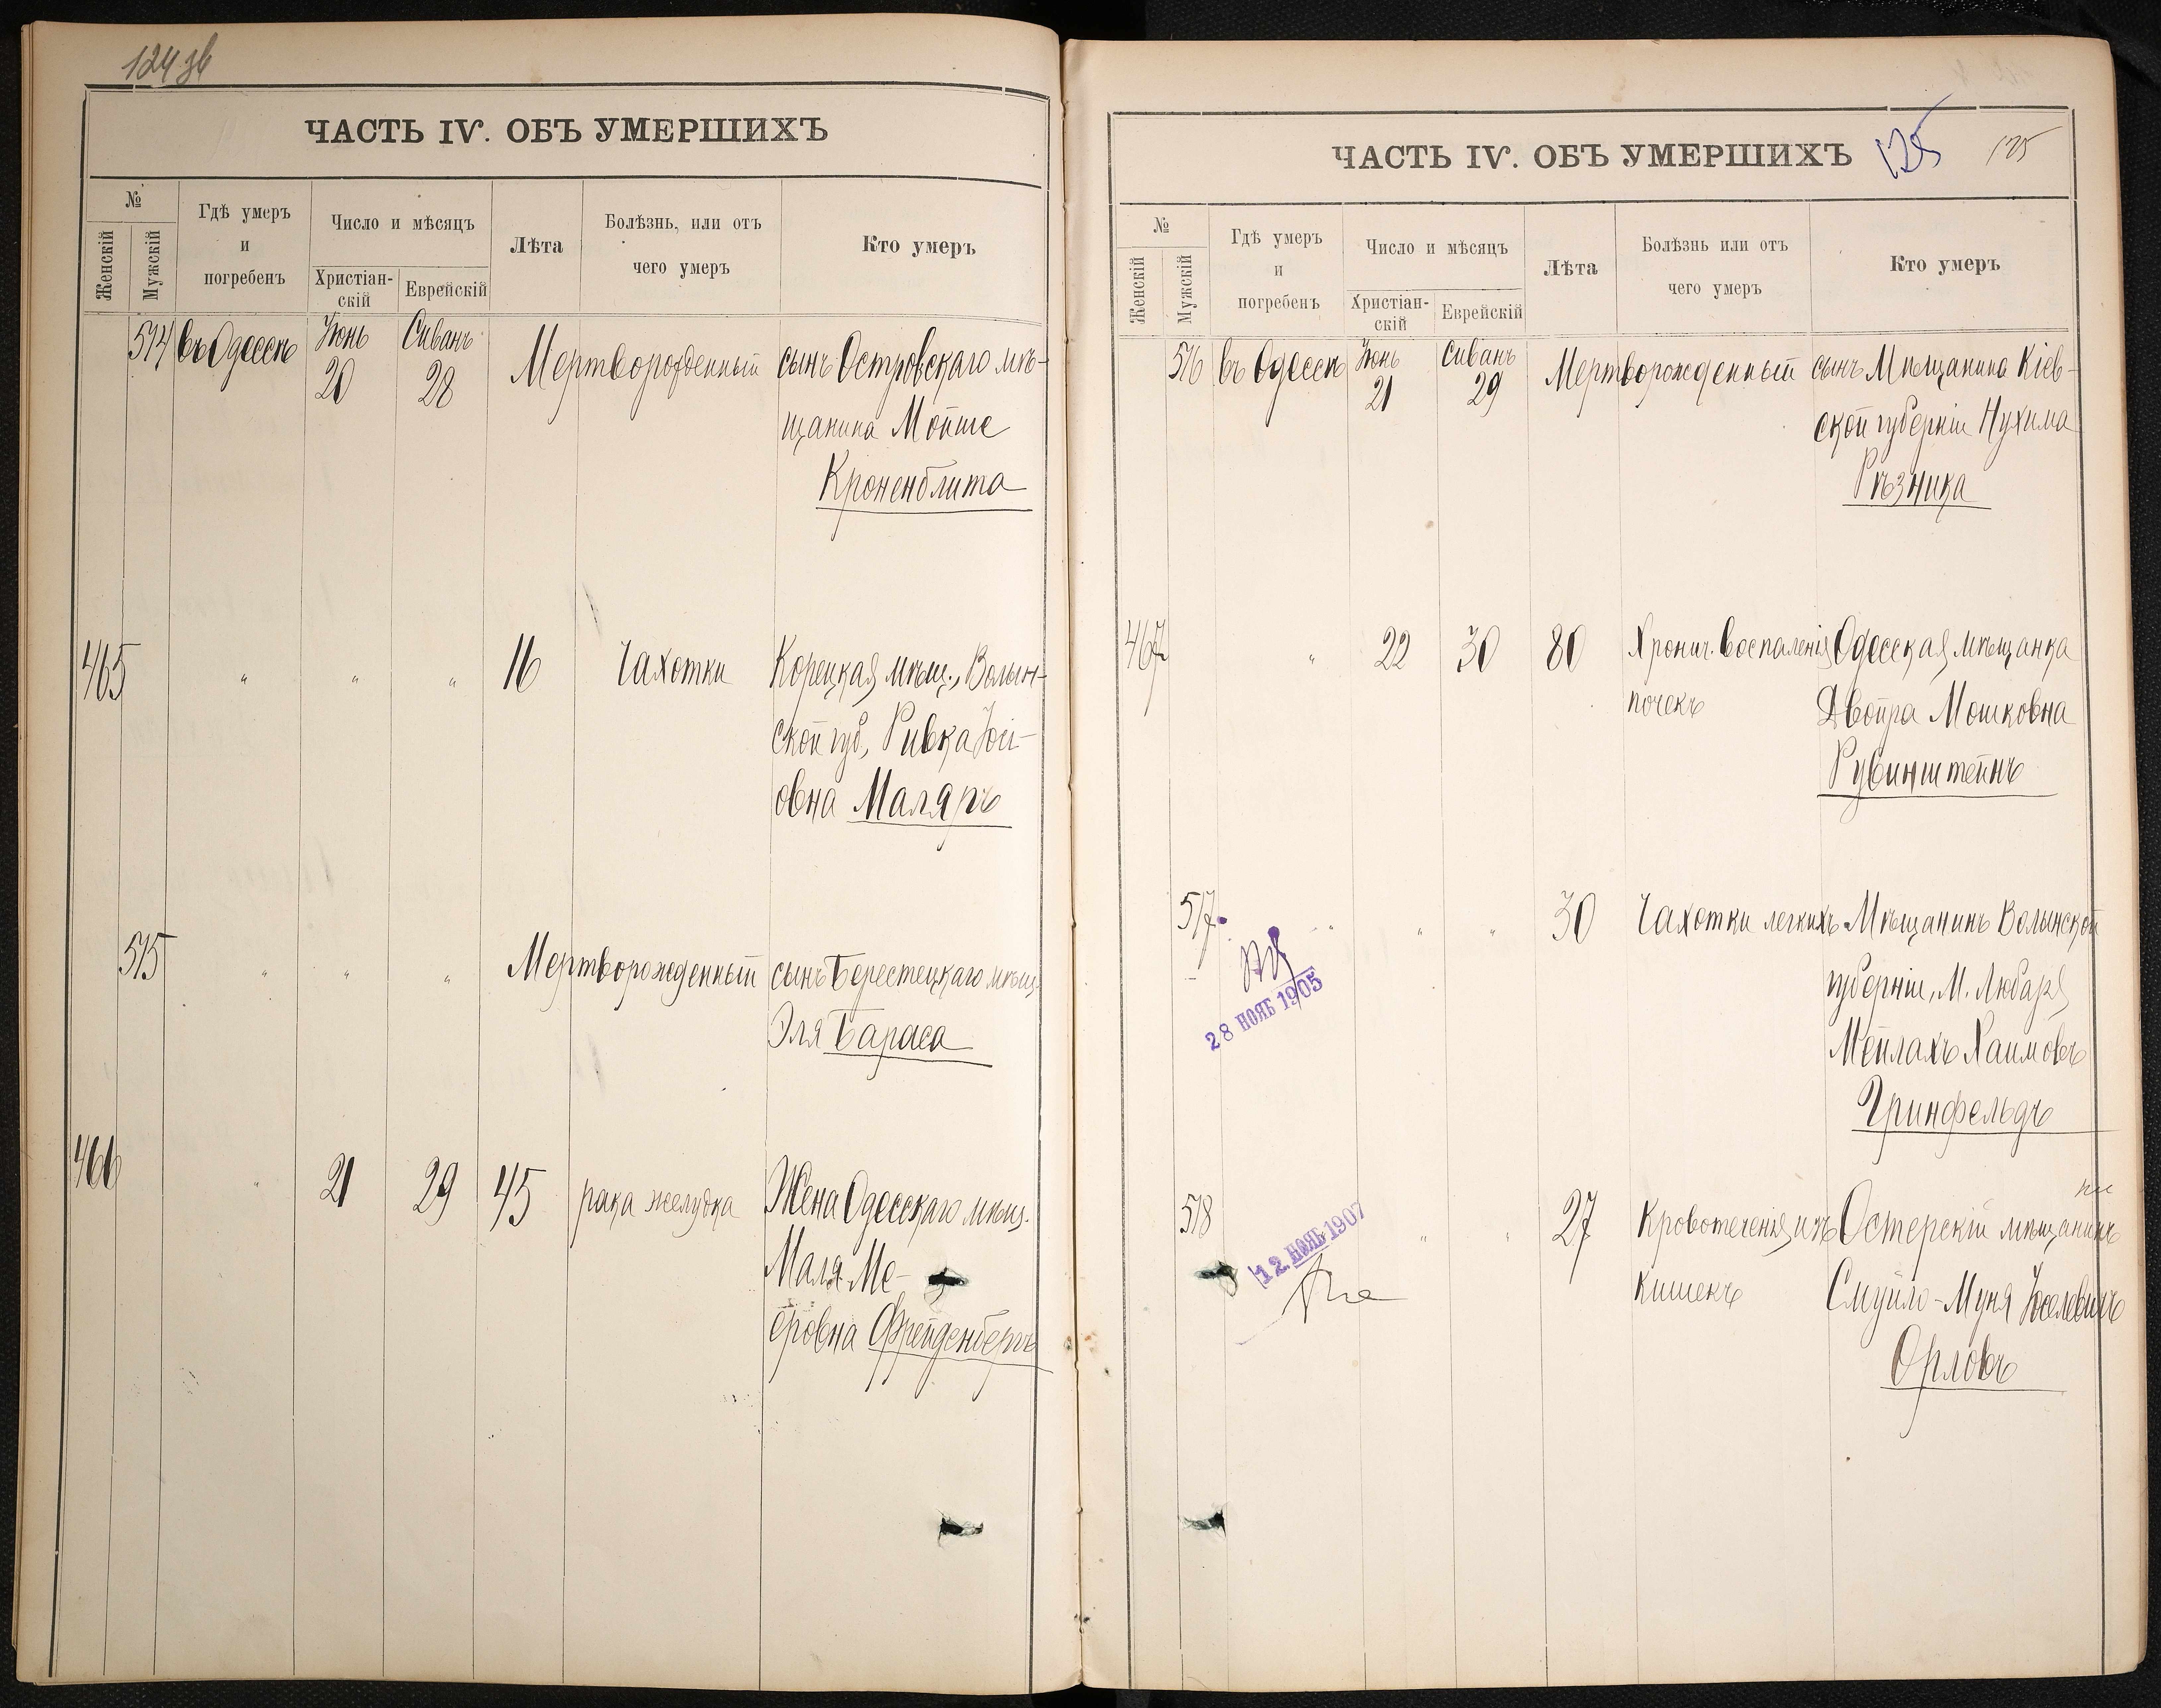 124 об
ЧАСТЬ IV. ОБЪ УМЕРШИХЪ
№
Женскій
Мужскій
Гдѣ умеръ
и
погребенъ
Число и мѣсяцъ
Христіан-
скій
Еврейскій
Лѣта
Болѣзнь, или отъ
чего умеръ
Кто умеръ
514 въ Одессѣ Іюнь 20 Сиванъ 28 Мертворожденный сынъ Островскаго мѣ-
щанина Мойше
Кроненблита
465 " " " 16 Чахотки Корецкая мѣщ., Волын-
ской губ., Ривка Іос-
овна Маляръ
515 " " " Мертворожденный сынъ Берестецкаго мѣщ.
Эля Бараса
466 " 21 29 45 рака желудка Жена Одесскаго мѣщ.
Маля Ме-
еровна Фрейденбергъ
ЧАСТЬ IV. ОБЪ УМЕРШИХЪ
125
125
№
Женскій
Мужскій
Гдѣ умеръ
и
погребенъ
Число и мѣсяцъ
Христіан-
скій
Еврейскій
Лѣта
Болѣзнь или отъ
чего умеръ
Кто умеръ
516 въ Одессѣ Іюнь 21 Сиванъ 29 Мертворожденный сынъ Мѣщанина Кіев-
ской губерніи Нухима
Рѣзника
467 " 22 30 80 Хронич. воспаленія Одесская мѣщанка
почекъ Двойра Мошковна
Рубинштейнъ
517 " " " 30 Чахотки легкихъ Мѣщанинъ Волынской
губерніи, М. Любаря
28 НОЯБ 1905
Мейлахъ Хаимовъ
Гринфельдъ
518 " " " 27 Кровотеченія изъ Остерскій мѣщанинъ
12. НОЯБ 1907
кишекъ Смуйло-Муня Іоселевичъ
Орловъ